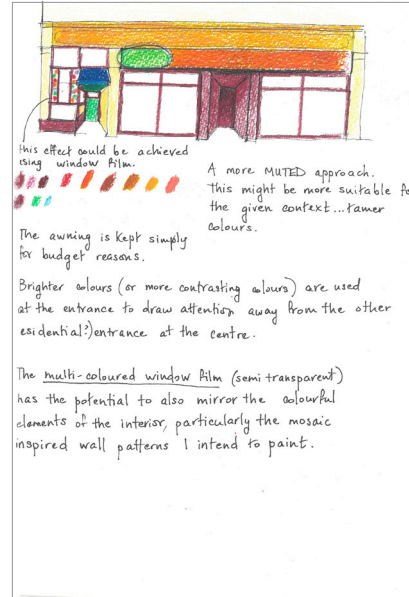 this effect could be achieved
using window film.
A more MUTED approach.
This might be more suitable fo
the given context...tamer
colours.
The awning is kept simply
for budget reasons.
Brighter colours (or more contrasting colours) are used
at the entrance to draw attention away from the other
esidential?) entrance at the centre.
The multi-coloured window film (semi transparent)
has the potential to also mirror the colourful
elements of the interior, particularly the mosaic
inspired wall patterns I intend to paint.